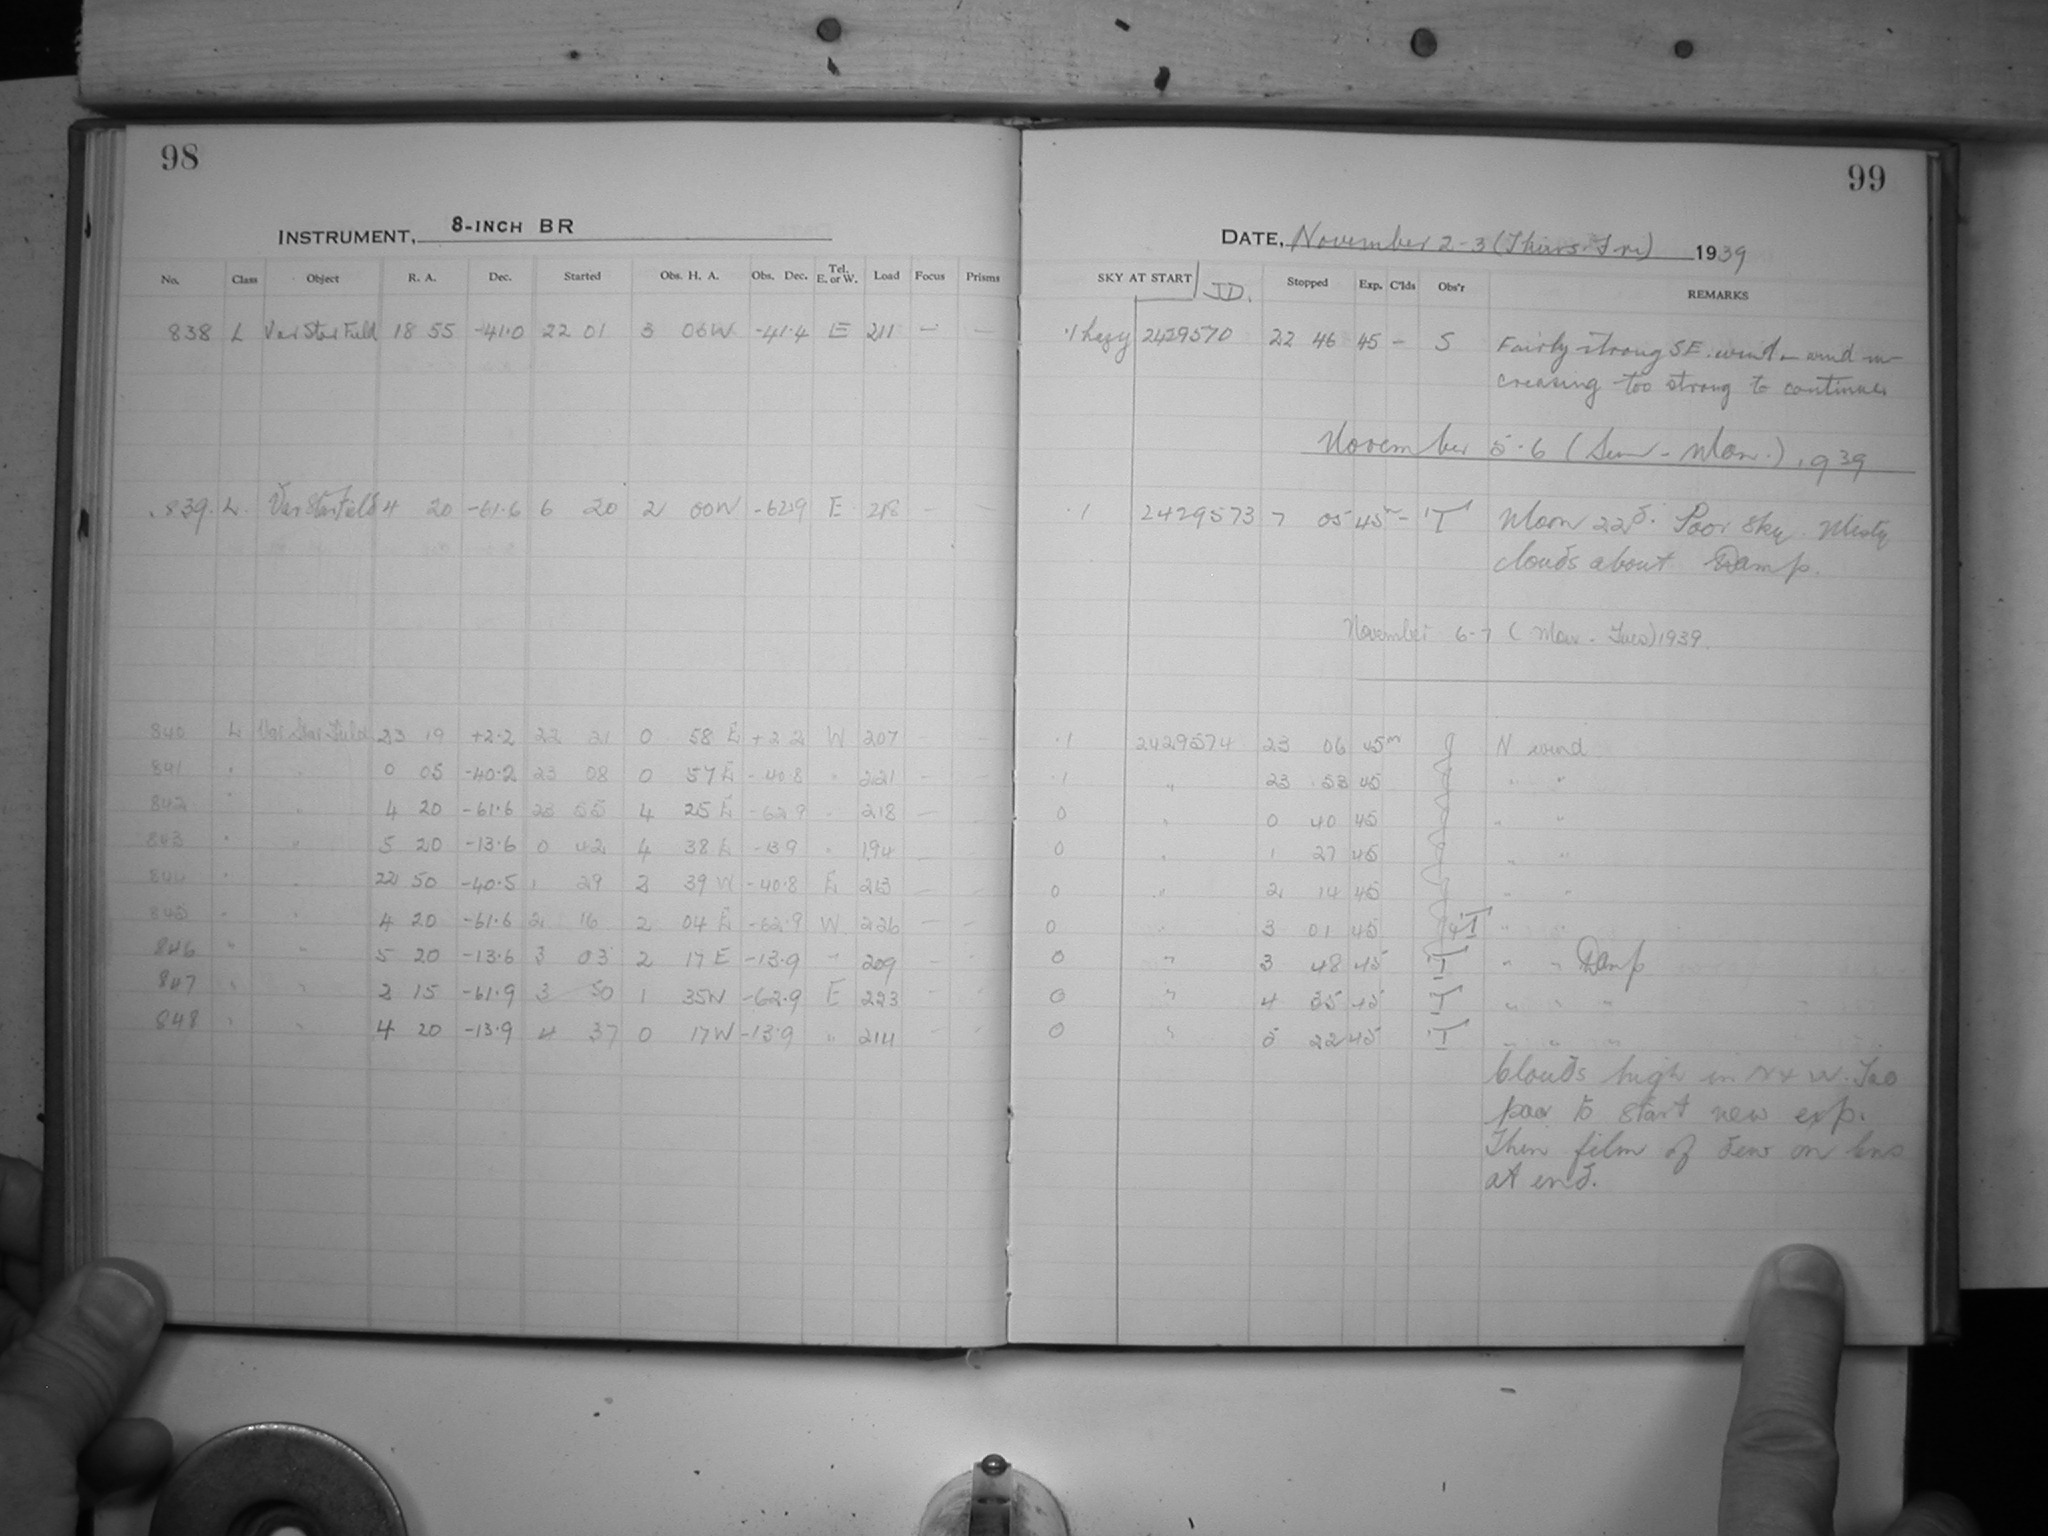 98
INSTRUMENT, 8-INCH BR
No. Class Object R. A. Dec. Started Obs. H. A. Obs. Dec. Tel. E. or W. Load Focus Prisms
838 L Var Star Field 18 55 -41.0 22 01 3 06W -41.4 E 211 - -
839. L. Var Star Field 4 20 -61.6 6 20 2 00W -62.9 E 218 - -
840 L Var Star Field 23 19 +2.2 22 21 0 58 E +2 2 W 207 - -
841 " " 0 05 -40.2 23 08 0 57 E -40.8 " 221 - -
842 " " 4 20 -61.6 23 55 4 25 E -62.9 " 218 - -
843 " " 5 20 -13.6 0 42 4 38 E -13.9 " 194 - -
844 " " 22 50 -40.5 1 29 2 39 W -40.8 E 213 - -
845 " " 4 20 -61.6 2 16 2 04 E -62.9 W 226 - -
846 " " 5 20 -13.6 3 03 2 17 E -13.9 " 209 - -
847 " " 2 15 -61.9 3 50 1 35W -62.9 E 223 - -
848 " " 4 20 -13.9 4 37 0 17W -13.9 " 211 - -
99
DATE, November 2-3 (Thurs-Fri) 1939
SKY AT START JD. Stopped Exp. C'lds Obs'r REMARKS
.1 hazy 2429570 22 46 45 - S Fairly strong SE. wind - wind in-
creasing too strong to continue
November 5-6 (Sun-Mon.) 1939
.1 2429573 7 05 45m - T Moon 22d. Poor sky. Misty
clouds about Damp.
November 6-7 (Mon-Tues) 1939.
.1 2429574 23 06 45m J N wind
.1 " 23 53 45 " "
0 " 0 40 45 " "
0 " 1 27 45 " "
0 " 2 14 45 " "
0 " 3 01 45 T " "
0 " 3 48 45 T " " Damp
0 " 4 35 45 T " " "
0 " 5 22 45 T " " "
Clouds high in N + W. Too
poor to start new exp.
Thin film of dew on lens
at end.